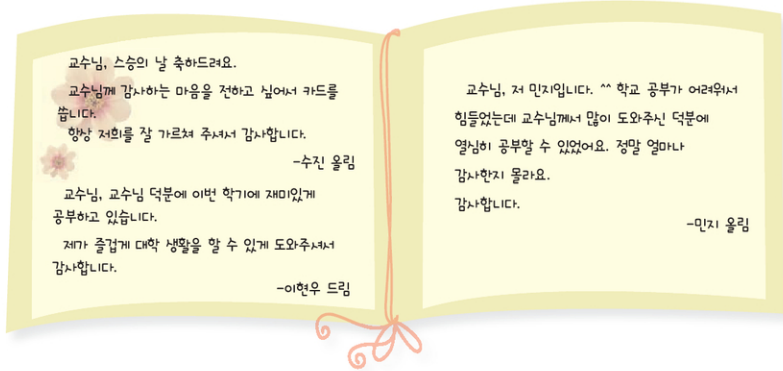 교수님, 스승의 날 축하드려요.
교수님께 감사하는 마음을 전하고 싶어서 카드를
씁니다.
항상 저희를 잘 가르쳐 주셔서 감사합니다.
-수진 올림
교수님, 교수님 덕분에 이번 학기에 재미있게
공부하고 있습니다.
제가 즐겁게 대학 생활을 할 수 있게 도와주셔서
감사합니다.
-이현우 드림
교수님, 저 민지입니다. ^^ 학교 공부가 어려워서
힘들었는데 교수님께서 많이 도와주신 덕분에
열심히 공부할 수 있었어요. 정말 얼마나
감사한지 몰라요.
감사합니다.
-민지 올림